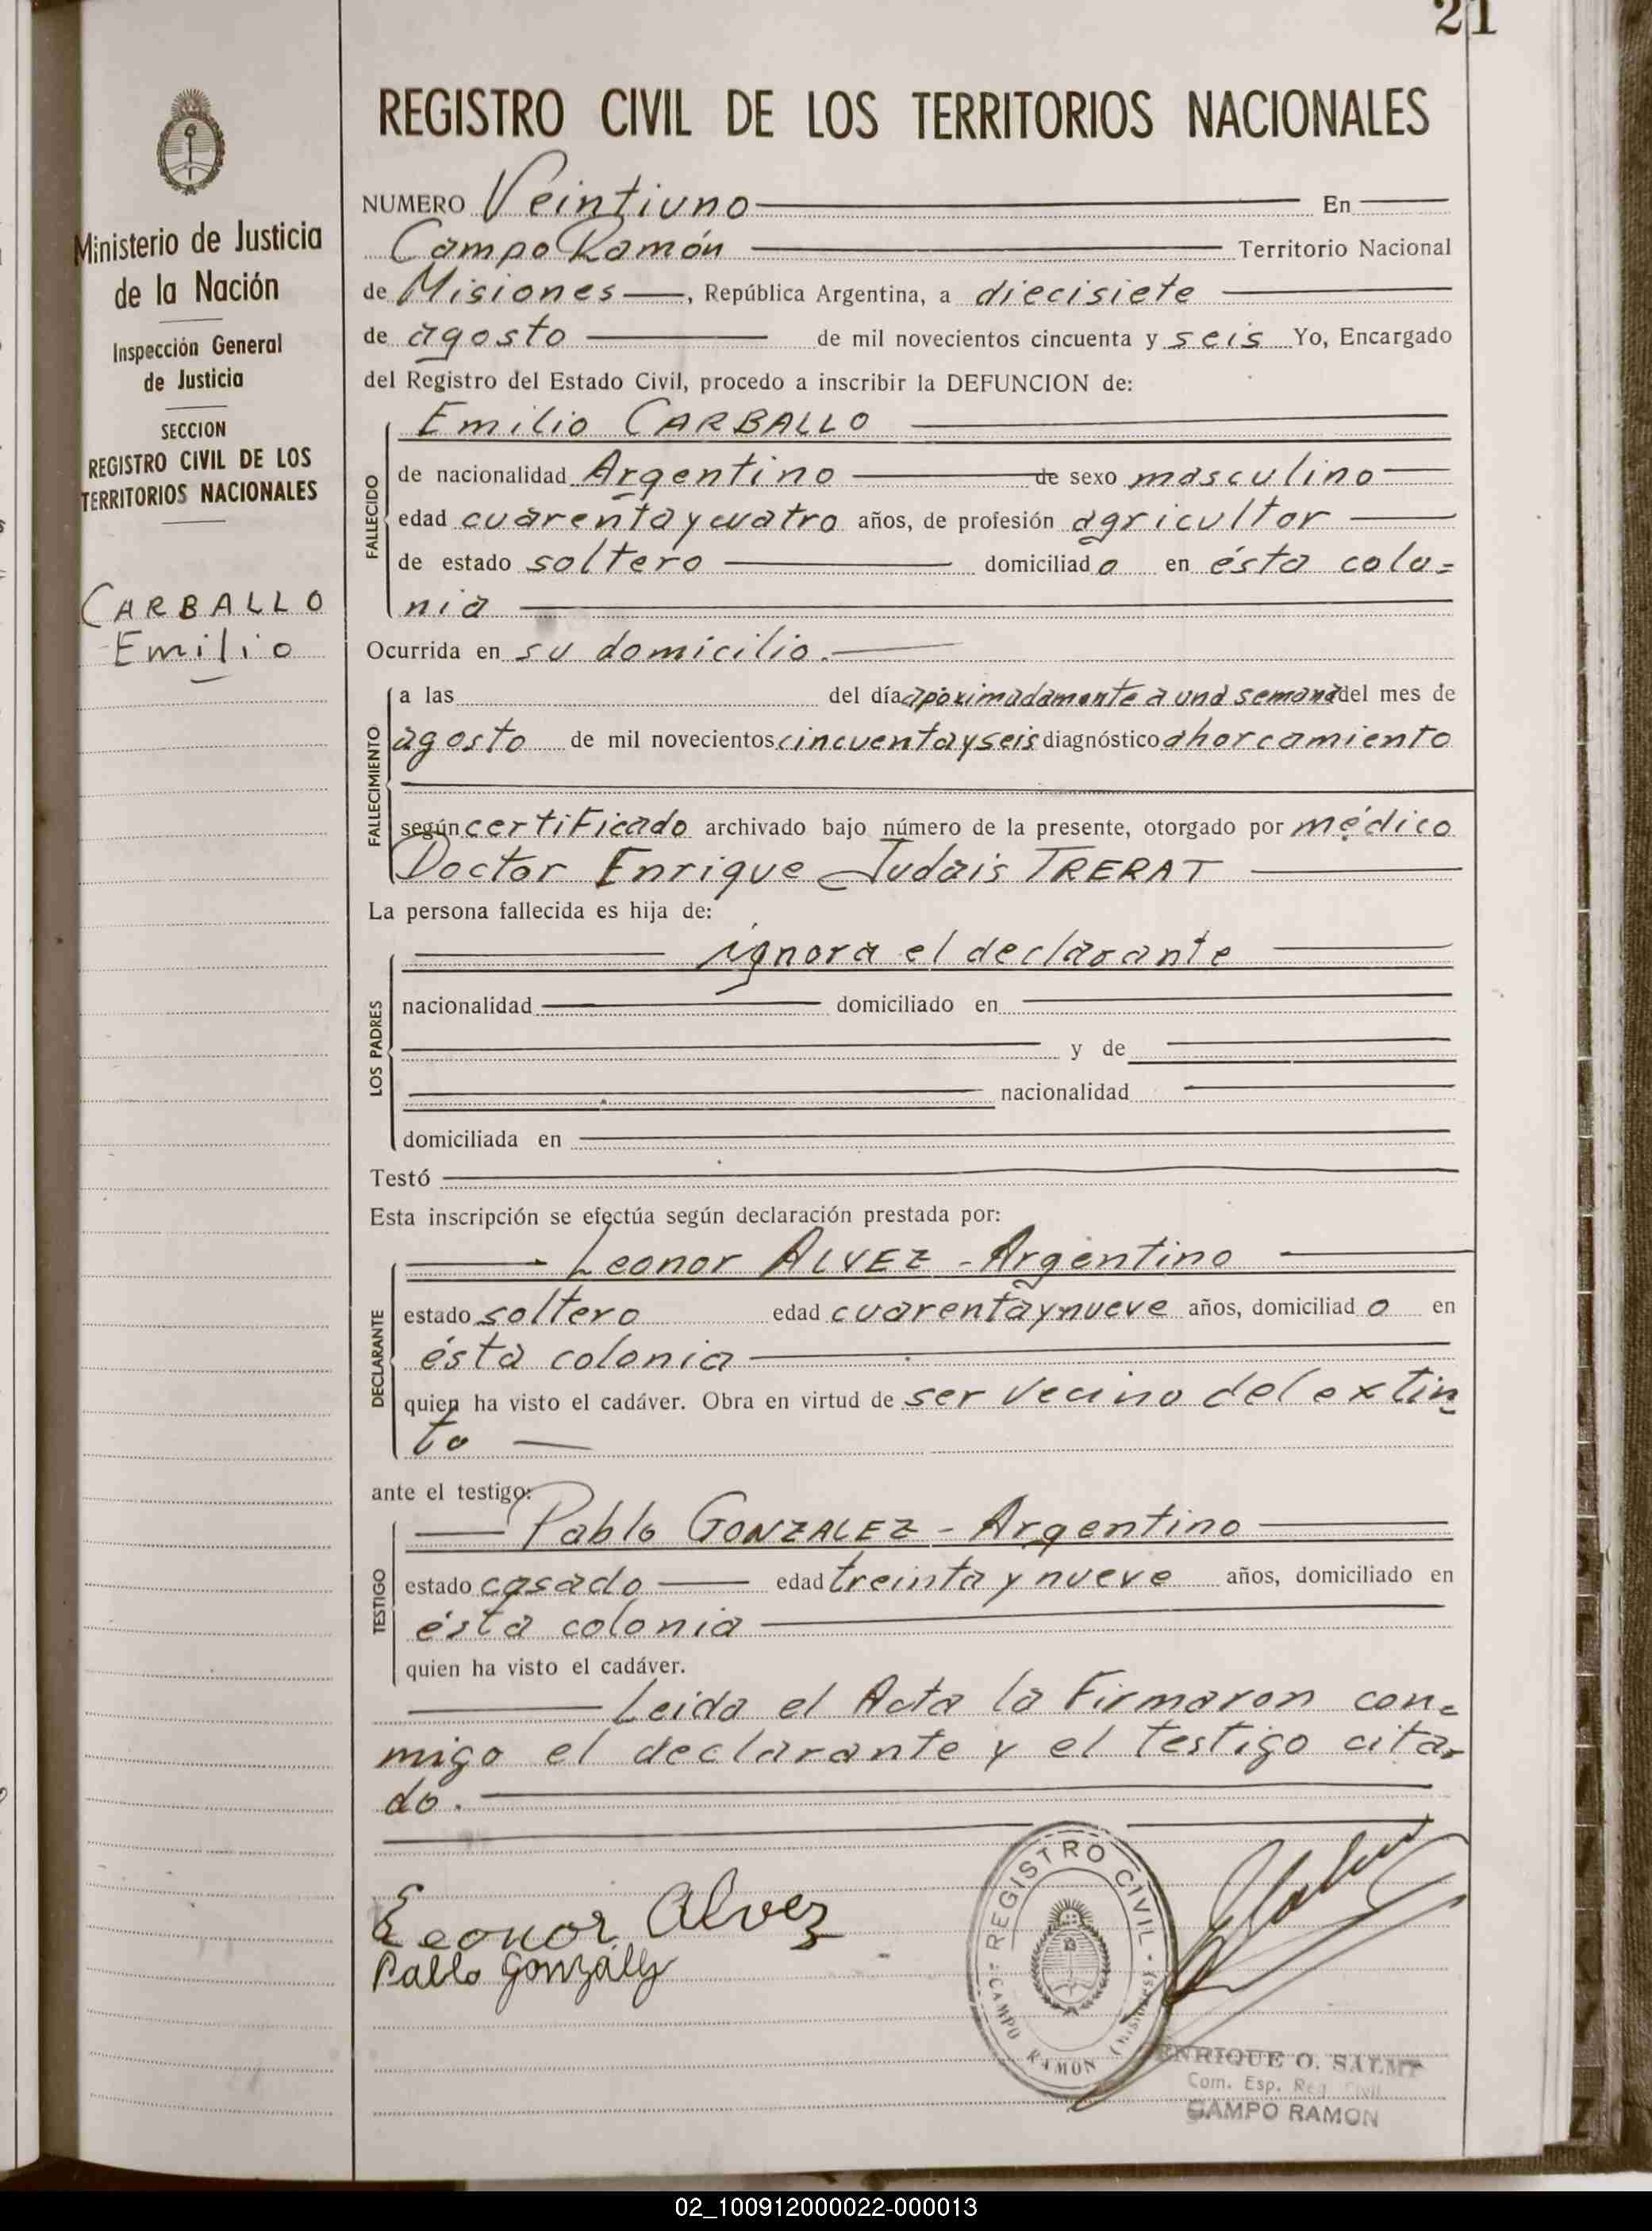 21
Ministerio de Justicia
de la Nación
Inspección General
de Justicia
SECCION
REGISTRO CIVIL DE LOS
TERRITORIOS NACIONALES
CARBALLO
Emilio
REGISTRO CIVIL DE LOS TERRITORIOS NACIONALES
NUMERO Veintiuno En
Campo Ramón Territorio Nacional
de Misiones, República Argentina, a diecisiete
de agosto de mil novecientos cincuenta y seis Yo, Encargado
del Registro del Estado Civil, procedo a inscribir la DEFUNCION de:
FALLECIDO
Emilio CARBALLO
de nacionalidad Argentino de sexo masculino
edad cuarenta y cuatro años, de profesión agricultor
de estado soltero domiciliado en ésta colo=
nia
Ocurrida en su domicilio.
FALLECIMIENTO
a las del día apoximadamente a una semana del mes de
agosto de mil novecientos cincuenta y seis diagnóstico ahorcamiento
según certificado archivado bajo número de la presente, otorgado por médico
Doctor Enrique Judais TRERAT
La persona fallecida es hija de:
LOS PADRES
ignora el declarante
nacionalidad domiciliado en
y de
nacionalidad
domiciliada en
Testó
Esta inscripción se efectúa según declaración prestada por:
DECLARANTE
Leonor ALVEZ - Argentino
estado soltero edad cuarenta y nueve años, domiciliado en
ésta colonia
quien ha visto el cadáver. Obra en virtud de ser vecino del extin
to
ante el testigo:
TESTIGO
Pablo GONZALEZ - Argentino
estado casado edad treinta y nueve años, domiciliado en
ésta colonia
quien ha visto el cadáver.
Leida el Acta la firmaron con=
migo el declarante y el testigo cita=
do.
Leonor Alvez
Pablo Gonzály
REGISTRO CIVIL - CAMPO RAMON (Misiones)
ENRIQUE O.
Com. Esp. Reg. Civil
CAMPO RAMON
02_100912000022-000013